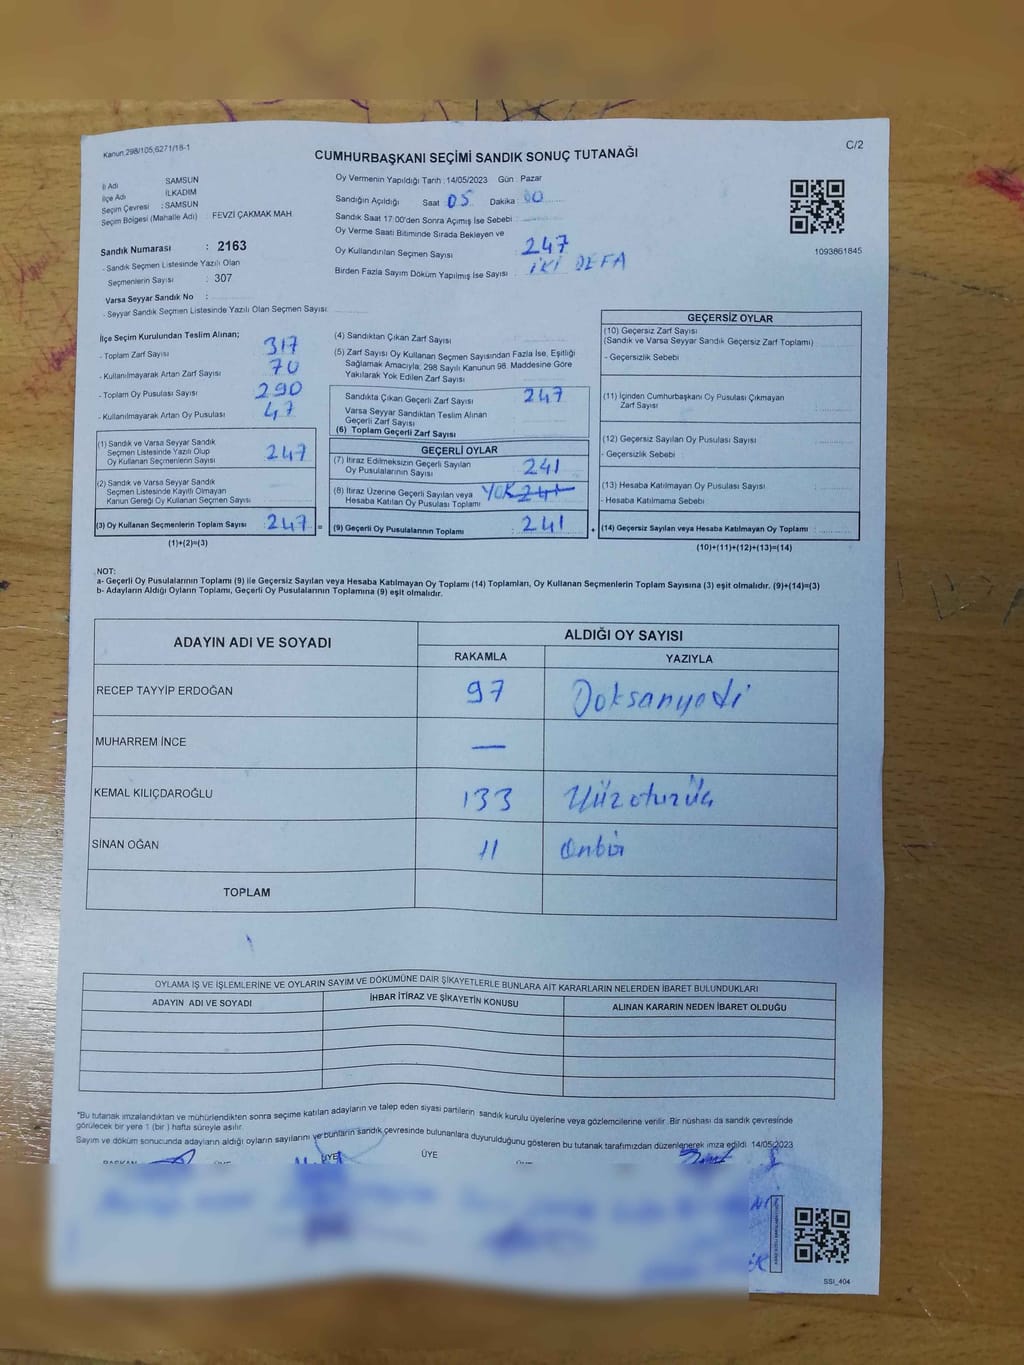 Kanun 298/105,6271/18-1
C/2
CUMHURBAŞKANI SEÇİMİ SANDIK SONUÇ TUTANAĞI
İl Adı SAMSUN
İlçe Adı İLKADIM
Seçim Çevresi : SAMSUN
Seçim Bölgesi (Mahalle Adı) FEVZİ ÇAKMAK MAH.
Sandık Numarası : 2163
- Sandık Seçmen Listesinde Yazılı Olan
Seçmenlerin Sayısı : 307
Varsa Seyyar Sandık No :
- Seyyar Sandık Seçmen Listesinde Yazılı Olan Seçmen Sayısı:
Oy Vermenin Yapıldığı Tarih : 14/05/2023 Gün : Pazar
Sandığın Açıldığı Saat 05 Dakika 00
Sandık Saat 17:00'den Sonra Açımış İse Sebebi :
Oy Verme Saati Bitiminde Sırada Bekleyen ve
Oy Kullandırılan Seçmen Sayısı : 247
Birden Fazla Sayım Döküm Yapılmış İse Sayısı : İKİ DEFA
1093861845
İlçe Seçim Kurulundan Teslim Alınan;
- Toplam Zarf Sayısı 317
- Kullanılmayarak Artan Zarf Sayısı 70
- Toplam Oy Pusulası Sayısı 290
- Kullanılmayarak Artan Oy Pusulası 47
(1) Sandık ve Varsa Seyyar Sandık
Seçmen Listesinde Yazılı Olup
Oy Kullanan Seçmenlerin Sayısı 247
(2) Sandık ve Varsa Seyyar Sandık
Seçmen Listesinde Kayıtlı Olmayan
Kanun Gereği Oy Kullanan Seçmen Sayısı
(3) Oy Kullanan Seçmenlerin Toplam Sayısı : 247 =
(1)+(2)=(3)
(4) Sandıktan Çıkan Zarf Sayısı :
(5) Zarf Sayısı Oy Kullanan Seçmen Sayısından Fazla İse, Eşitliği
Sağlamak Amacıyla, 298 Sayılı Kanunun 98. Maddesine Göre
Yakılarak Yok Edilen Zarf Sayısı
Sandıkta Çıkan Geçerli Zarf Sayısı : 247
Varsa Seyyar Sandıktan Teslim Alınan
Geçerli Zarf Sayısı
(6) Toplam Geçerli Zarf Sayısı
GEÇERLİ OYLAR
(7) İtiraz Edilmeksizin Geçerli Sayılan
Oy Pusulalarının Sayısı : 241
(8) İtiraz Üzerine Geçerli Sayılan veya
Hesaba Katılan Oy Pusulası Toplamı YOK 241
(9) Geçerli Oy Pusulalarının Toplamı : 241 +
GEÇERSİZ OYLAR
(10) Geçersiz Zarf Sayısı
(Sandık ve Varsa Seyyar Sandık Geçersiz Zarf Toplamı) :
- Geçersizlik Sebebi :
(11) İçinden Cumhurbaşkanı Oy Pusulası Çıkmayan
Zarf Sayısı :
(12) Geçersiz Sayılan Oy Pusulası Sayısı :
- Geçersizlik Sebebi :
(13) Hesaba Katılmayan Oy Pusulası Sayısı :
- Hesaba Katılmama Sebebi :
(14) Geçersiz Sayılan veya Hesaba Katılmayan Oy Toplamı :
(10)+(11)+(12)+(13)=(14)
NOT:
a- Geçerli Oy Pusulalarının Toplamı (9) ile Geçersiz Sayılan veya Hesaba Katılmayan Oy Toplamı (14) Toplamları, Oy Kullanan Seçmenlerin Toplam Sayısına (3) eşit olmalıdır. (9)+(14)=(3)
b- Adayların Aldığı Oyların Toplamı, Geçerli Oy Pusulalarının Toplamına (9) eşit olmalıdır.
ADAYIN ADI VE SOYADI ALDIĞI OY SAYISI
RAKAMLA YAZIYLA
RECEP TAYYİP ERDOĞAN 97 Doksanyedi
MUHARREM İNCE —
KEMAL KILIÇDAROĞLU 133 Yüzotuzüç
SİNAN OĞAN 11 Onbir
TOPLAM
OYLAMA İŞ VE İŞLEMLERİNE VE OYLARIN SAYIM VE DÖKÜMÜNE DAİR ŞİKAYETLERLE BUNLARA AİT KARARLARIN NELERDEN İBARET BULUNDUKLARI
ADAYIN ADI VE SOYADI İHBAR İTİRAZ VE ŞİKAYETİN KONUSU ALINAN KARARIN NEDEN İBARET OLDUĞU
*Bu tutanak imzalandıktan ve mühürlendikten sonra seçime katılan adayların ve talep eden siyasi partilerin sandık kurulu üyelerine veya gözlemcilerine verilir. Bir nüshası da sandık çevresinde
görülecek bir yere 1 (bir) hafta süreyle asılır.
Sayım ve döküm sonucunda adayların aldığı oyların sayılarını ve bunların sandık çevresinde bulunanlara duyurulduğunu gösteren bu tutanak tarafımızdan düzenlenerek imza edildi. 14/05/2023
BAŞKAN ÜYE ÜYE ÜYE
SSI_404